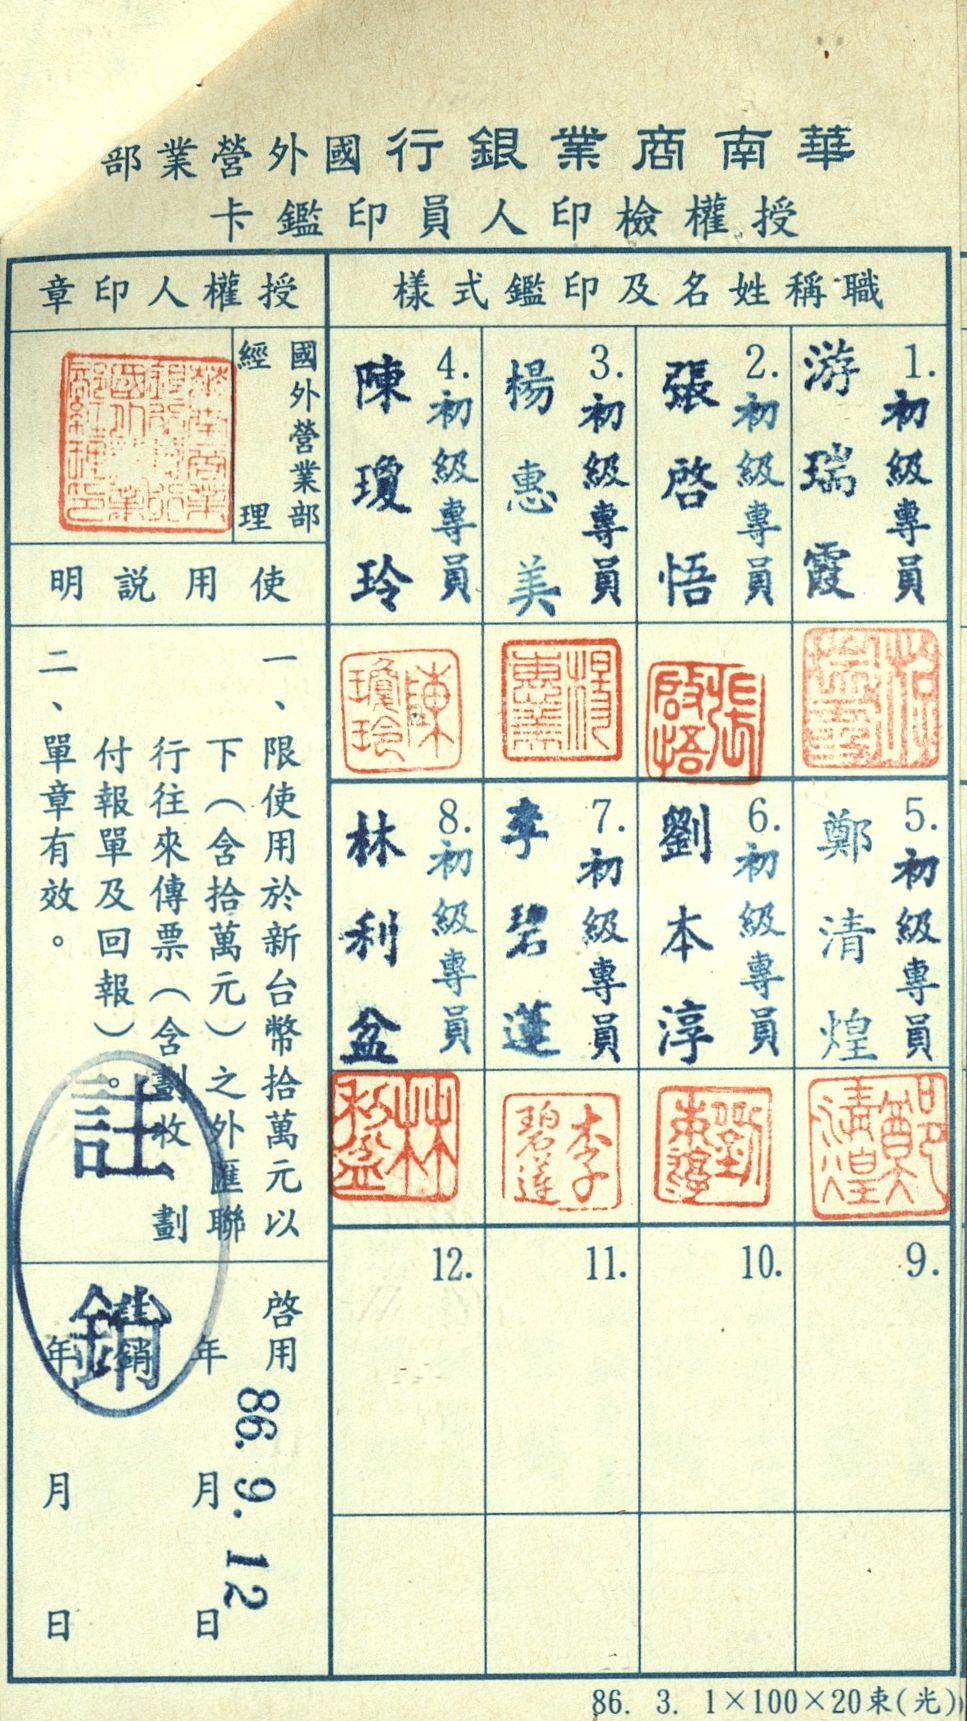 華南商業銀行國外營業部
授權檢印人員印鑑卡
職稱姓名及印鑑式樣
1.初級專員
游瑞霞
2.初級專員
張啓悟
3.初級專員
楊惠美
4.初級專員
陳瓊玲
5.初級專員
鄭清煌
6.初級專員
劉本淳
7.初級專員
李碧蓮
8.初級專員
林利盆
9.
10.
11.
12.
授權人印章
國外營業部
經理
使用說明
一、限使用於新台幣拾萬元以
下（含拾萬元）之外匯聯
行往來傳票（含劃收劃
付報單及回報）。
二、單章有效。
啓用
年月日
86.9.12
註銷
年月日
註銷
86. 3. 1×100×20束(光)